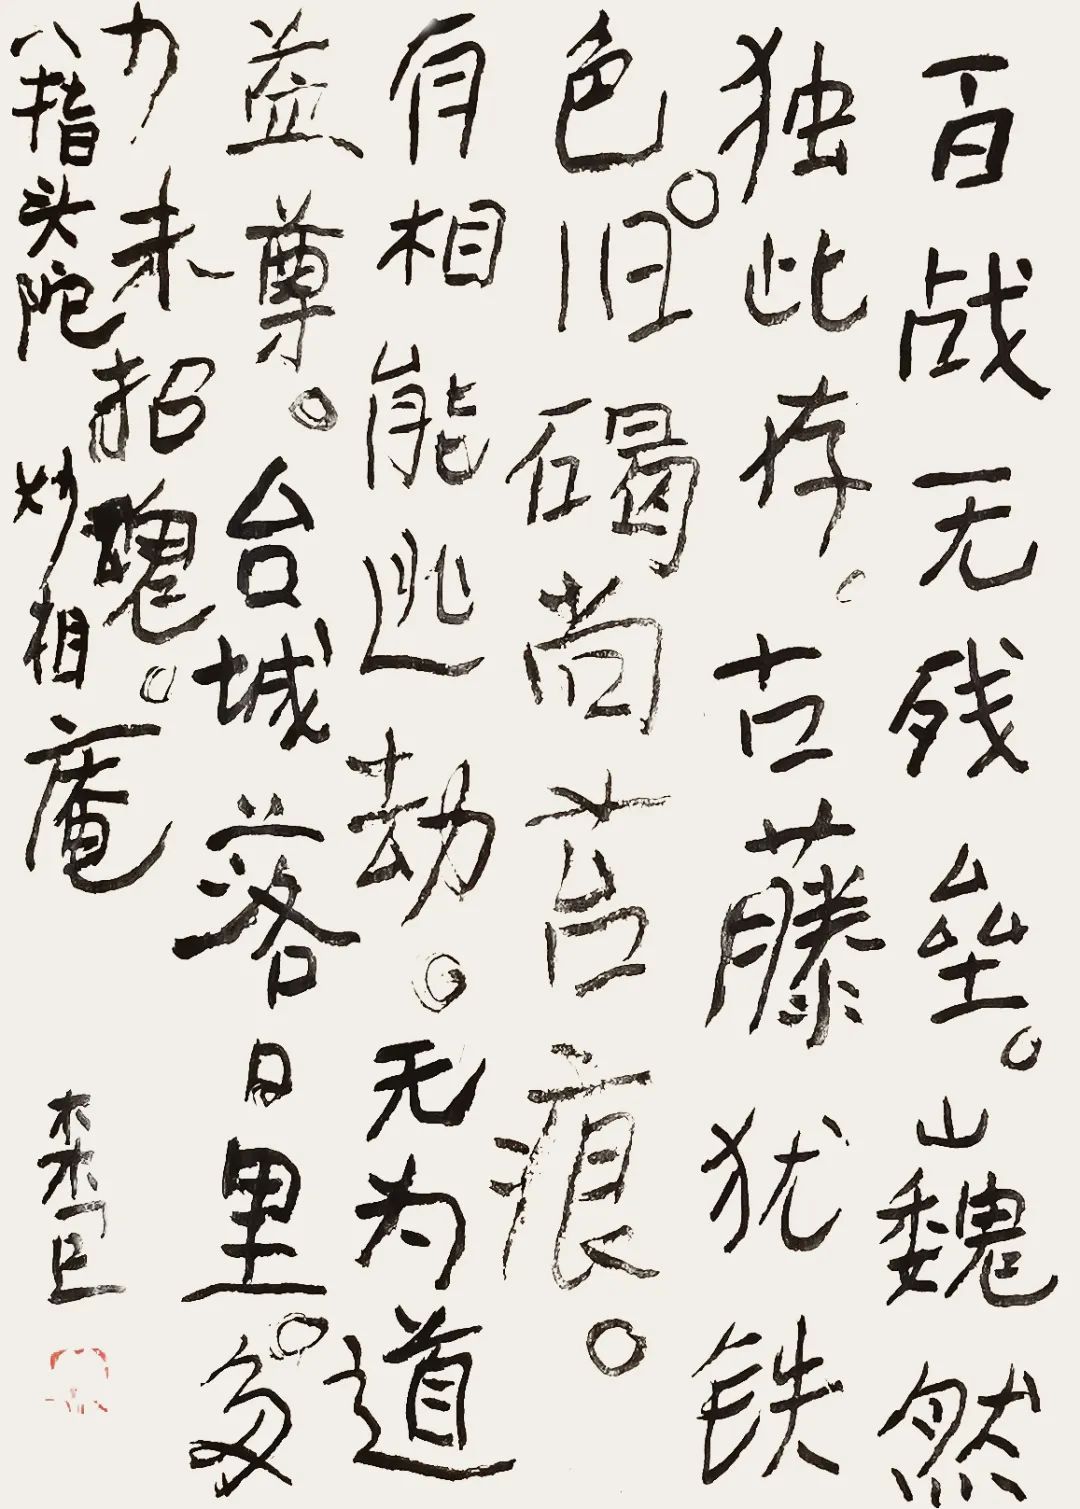 百战无残垒。巍然
独此存。古藤犹铁
色。旧碣尚苔痕。
有相能逃劫。无为道
益尊。台城落日里。多
力未招魂。
八指头陀 妙相庵